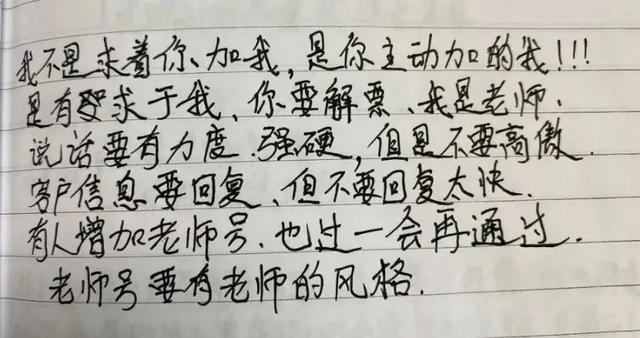 我不是求着你、加我，是你主动加的我！！！
是有求于我、你要解票、我是老师.
说话要有力度.强硬，但是不要高傲.
客户信息要回复、但不要回复太快.
有人增加老师号、也过一会再通过.
老师号要有老师的风格.